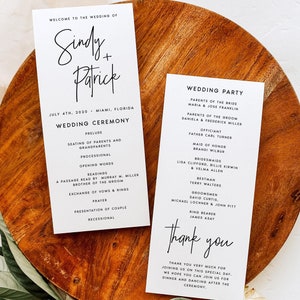 WELCOME TO THE WEDDING OF
Sindy
+
Patrick
JULY 4TH, 2020 • MIAMI, FLORIDA
WEDDING CEREMONY
PRELUDE
SEATING OF PARENTS AND
GRANDPARENTS
PROCESSIONAL
OPENING WORDS
READINGS
A PASSAGE READ BY MURRAY W. MILLER
BROTHER OF THE GROOM
EXCHANGE OF VOWS & RINGS
PRAYER
PRESENTATION OF COUPLE
RECESSIONAL
WEDDING PARTY
PARENTS OF THE BRIDE
MARIA & JOSE FRANKLIN
PARENTS OF THE GROOM
DANIELA & FREDERICK MILLER
OFFICIANT
FATHER CARL TURNER
MAID OF HONOR
BRANDI WILBUR
BRIDESMAIDS
LISA CLIFFORD, BILLIE KIRWIN
& VELMA ALLEN
BESTMAN
TERRY WALTERS
GROOMSMEN
DAVID CURTIS,
MICHAEL LOCHNER & JOHN PITT
RING BEARER
JAMES HART
thank you
THANK YOU VERY MUCH FOR
JOINING US ON THIS SPECIAL DAY.
WE HOPE YOU CAN JOIN US FOR
DINNER AND DANCING AFTER THE
CEREMONY.